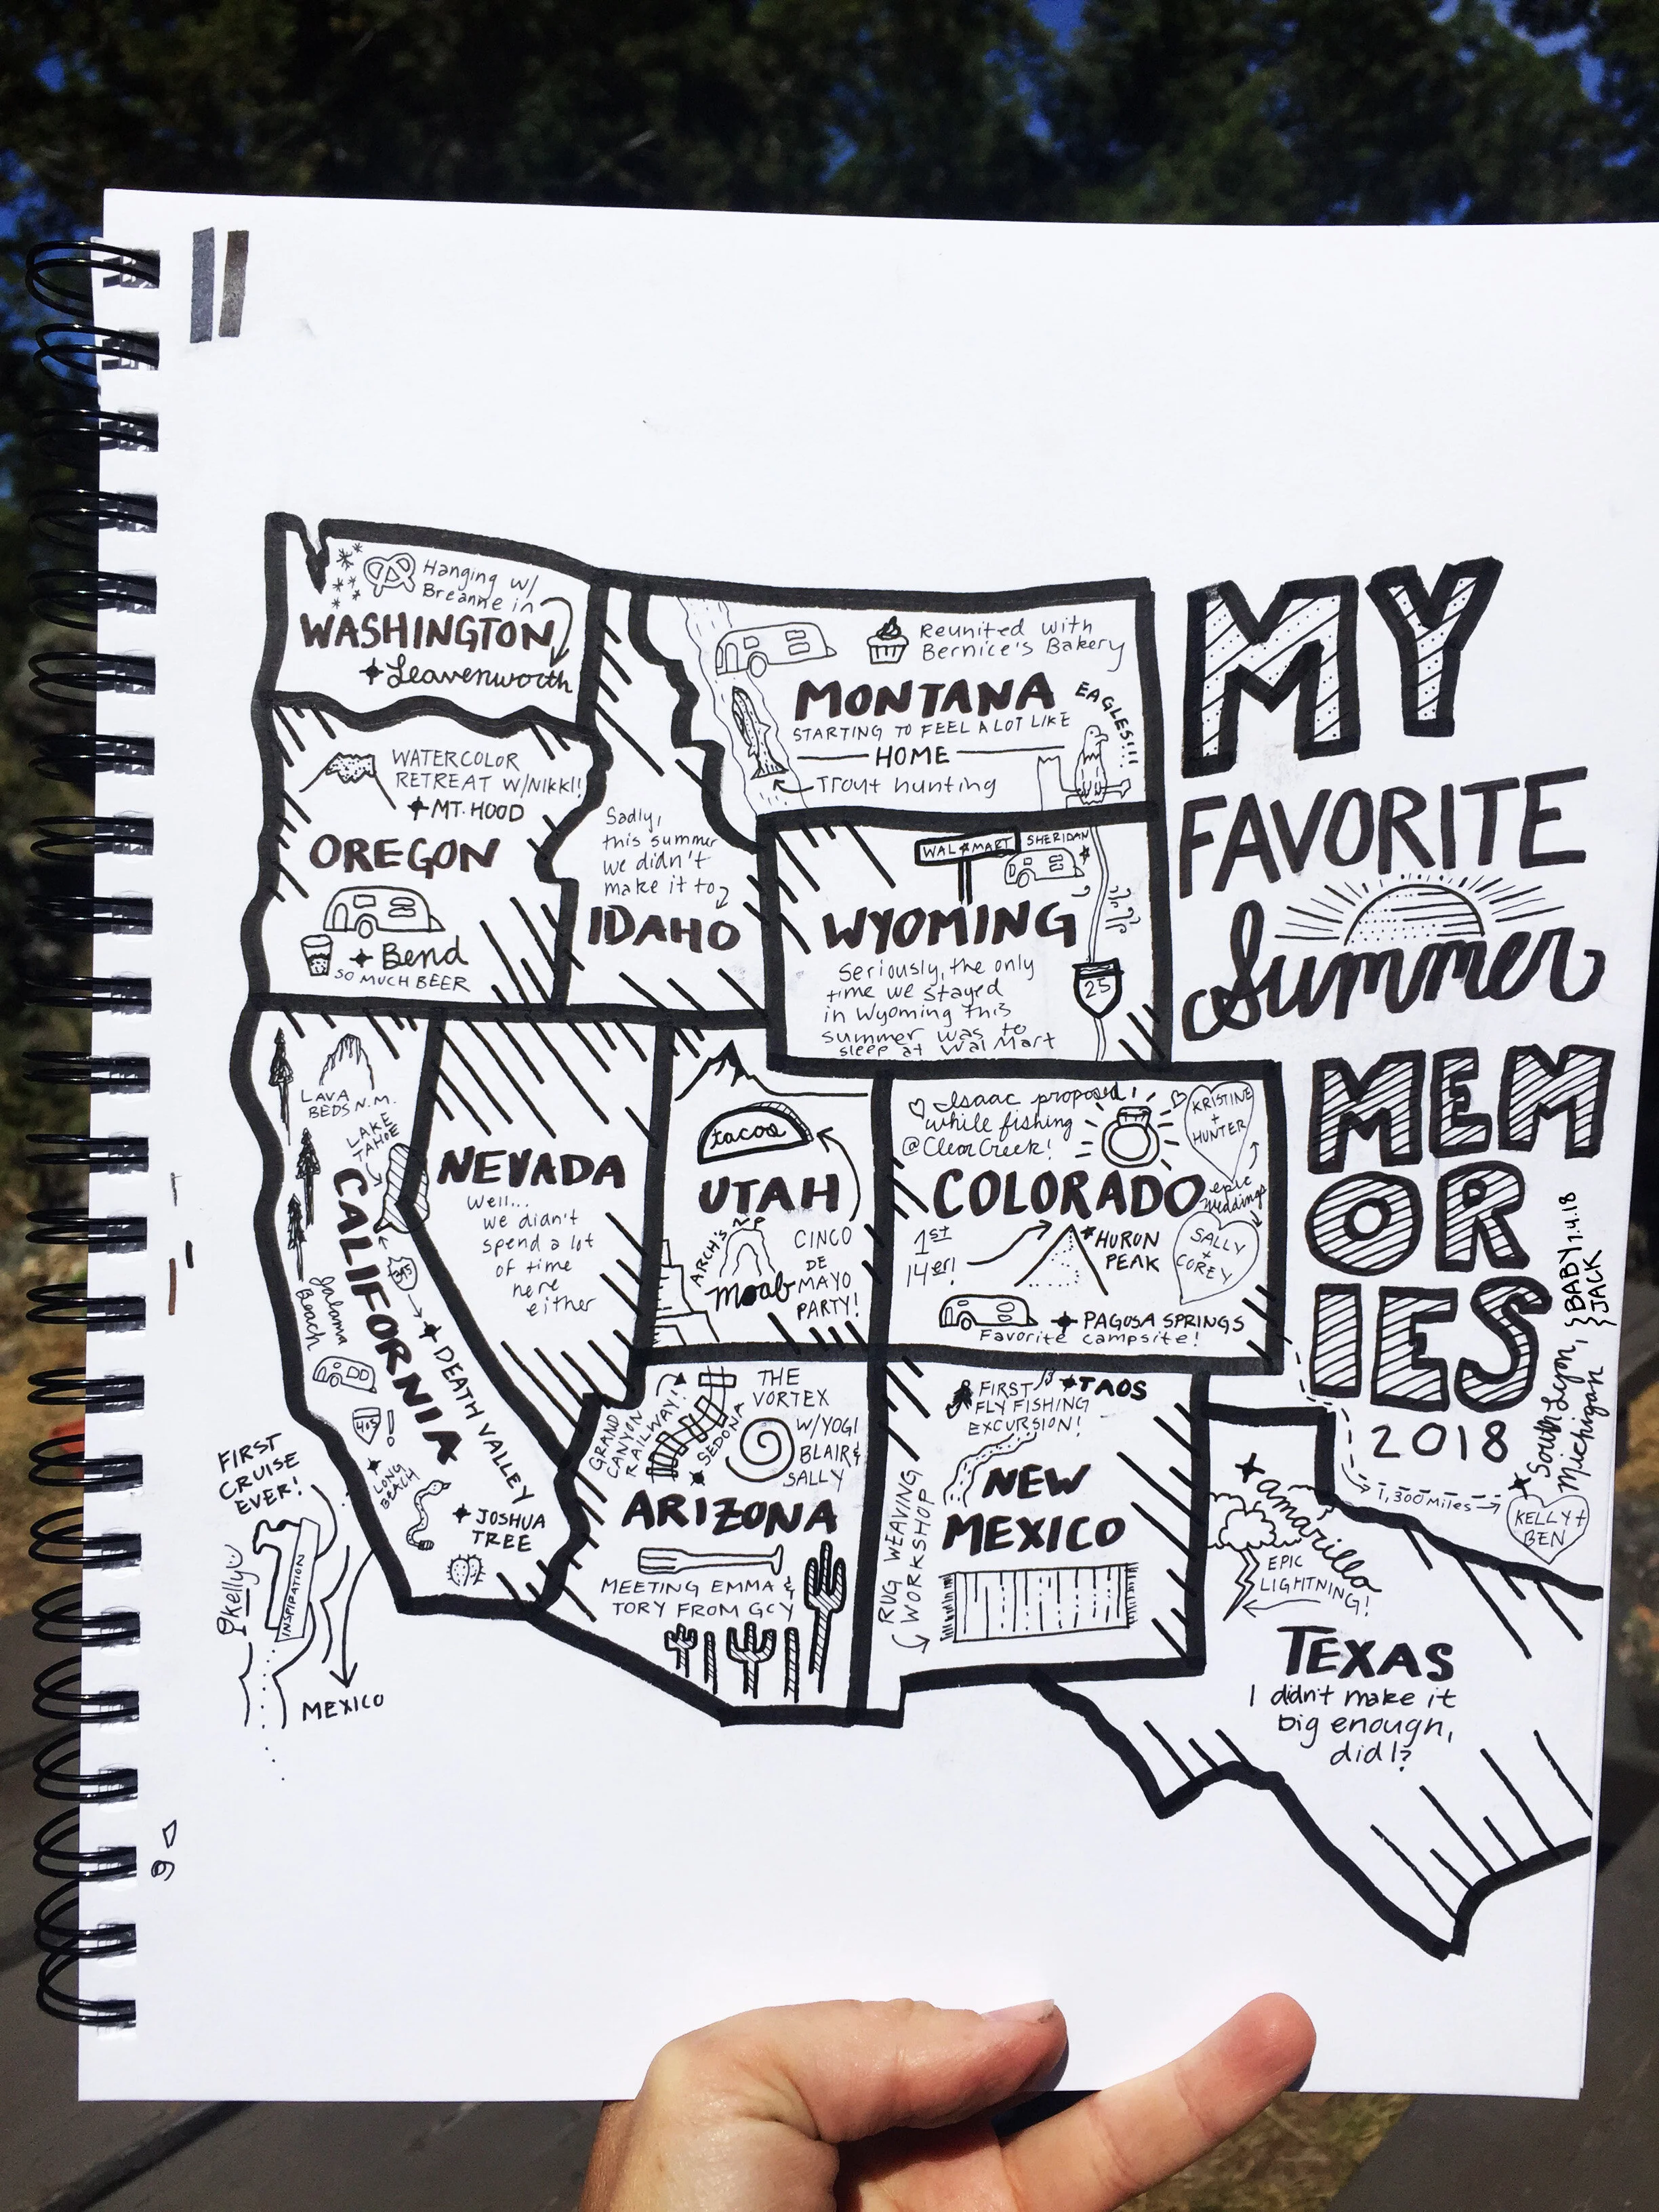 MY
FAVORITE
Summer
MEM
OR
IES
2018
Hanging w/
Breanne in
WASHINGTON
Leavenworth
WATERCOLOR
RETREAT W/NIKKI!
MT. HOOD
OREGON
Bend
SO MUCH BEER
Sadly,
this summer
we didn't
make it to
IDAHO
Reunited with
Bernice's Bakery
MONTANA
STARTING TO FEEL A LOT LIKE
HOME
Trout hunting
EAGLES!!!
WAL★MART
SHERIDAN
WYOMING
25
Seriously, the only
time we stayed
in Wyoming this
summer was to
sleep at Wal Mart
LAVA
BEDS N.M.
LAKE
TAHOE
CALIFORNIA
395
DEATH VALLEY
Jalama
Beach
405!
LONG
BEACH
JOSHUA
TREE
NEVADA
Well...
we didn't
spend a lot
of time
here
either
tacos
UTAH
ARCH'S NP
Moab
CINCO
DE
MAYO
PARTY!
Isaac proposed
while fishing
@ Clear Creek!
KRISTINE
+
HUNTER
COLORADO
epic
weddings
SALLY
+
COREY
1st
14er!
HURON
PEAK
PAGOSA SPRINGS
Favorite campsite!
GRAND
CANYON
RAILWAY!
SEDONA
THE
VORTEX
W/YOGI
BLAIR &
SALLY
ARIZONA
MEETING EMMA &
TORY FROM GCY
FIRST
FLY FISHING
EXCURSION!
TAOS
NEW
MEXICO
RUG WEAVING
WORKSHOP
amarillo
EPIC
LIGHTNING!
TEXAS
I didn't make it
big enough,
did I?
1,300 Miles
South Lyon,
Michigan
BABY 7.4.18
JACK
KELLY +
BEN
FIRST
CRUISE
EVER!
kelly
INSPIRATION
MEXICO